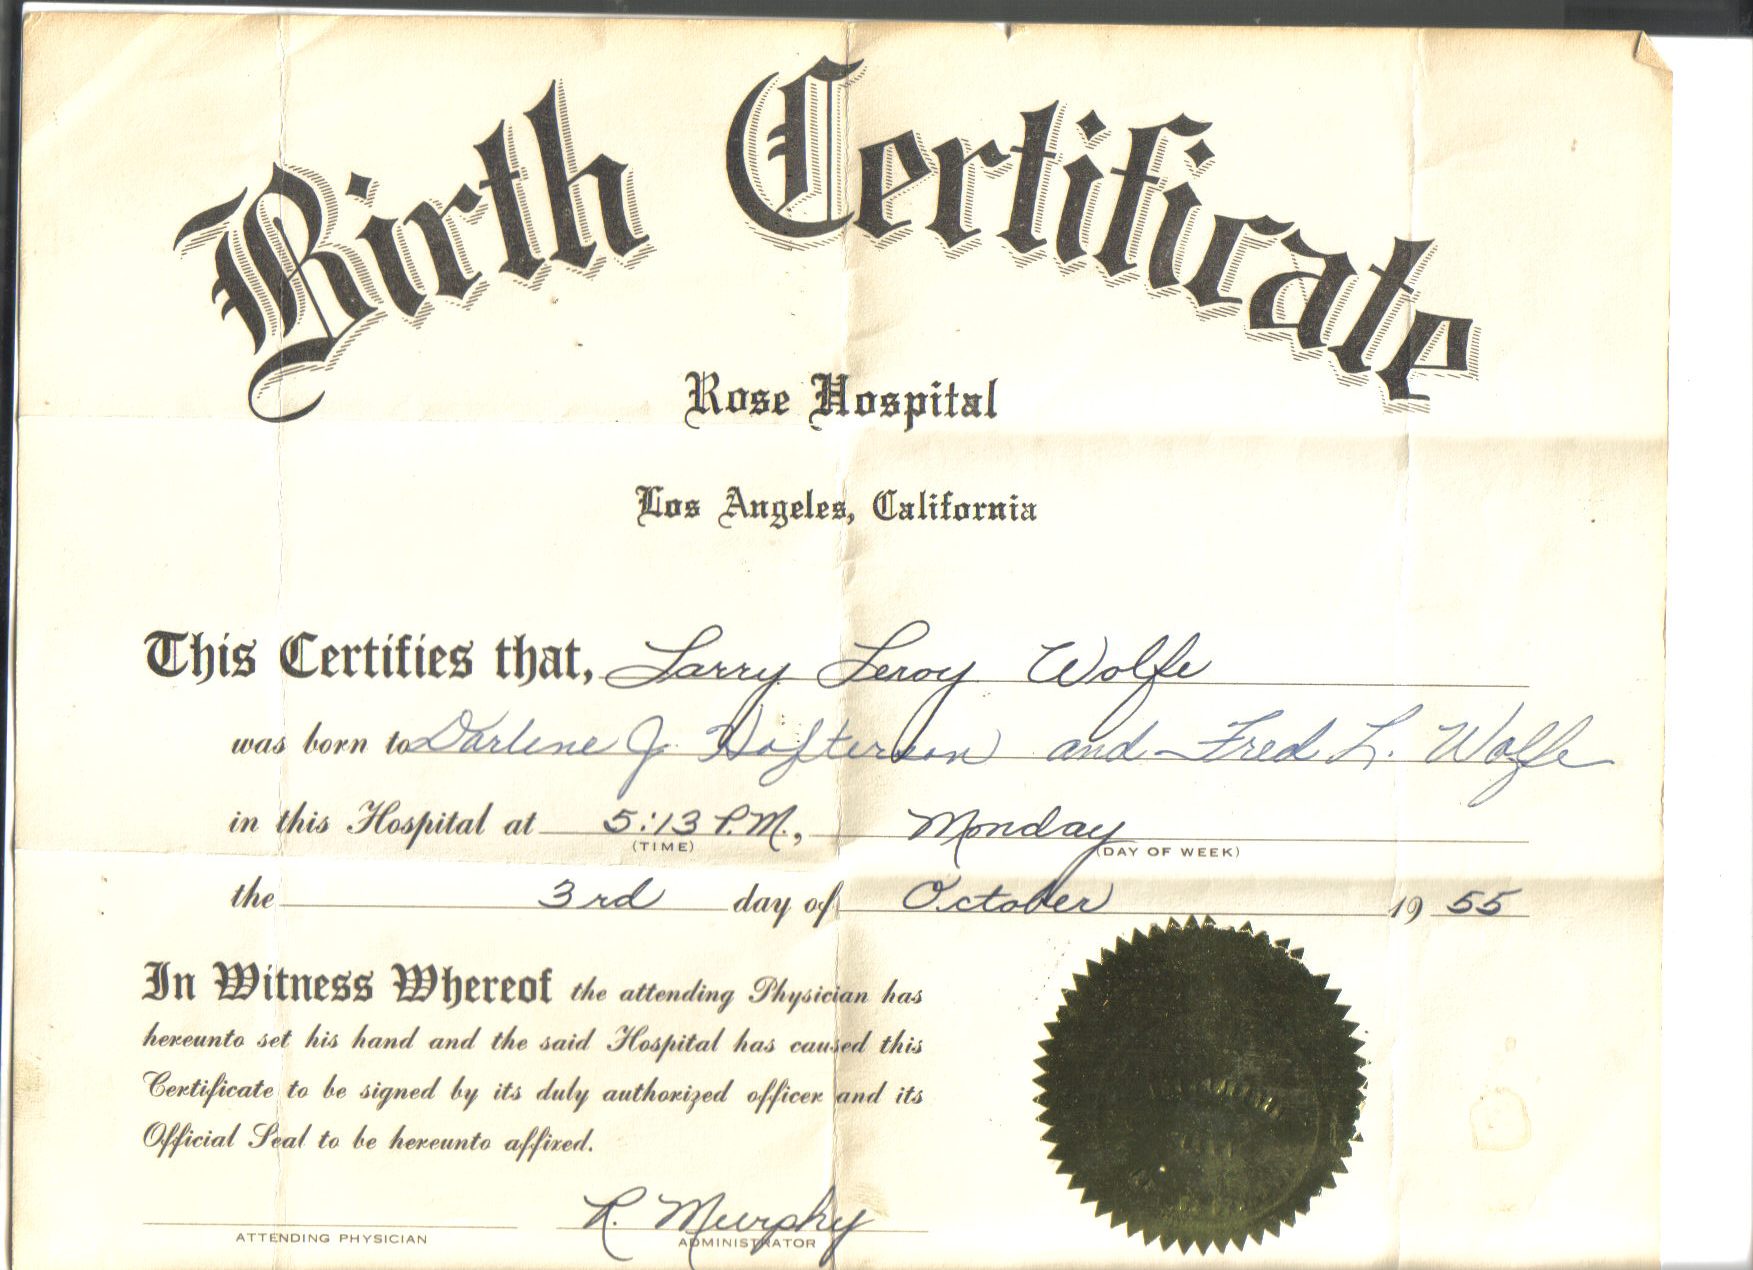 Birth Certificate
Rose Hospital
Los Angeles, California
This Certifies that, Larry Leroy Wolfe
was born to Darlene J. Hofterson and Fred L. Wolfe
in this Hospital at 5:13 P.M., Monday
(TIME) (DAY OF WEEK)
the 3rd day of October 19 55
In Witness Whereof the attending Physician has
hereunto set his hand and the said Hospital has caused this
Certificate to be signed by its duly authorized officer and its
Official Seal to be hereunto affixed.
R. Murphy
ATTENDING PHYSICIAN ADMINISTRATOR